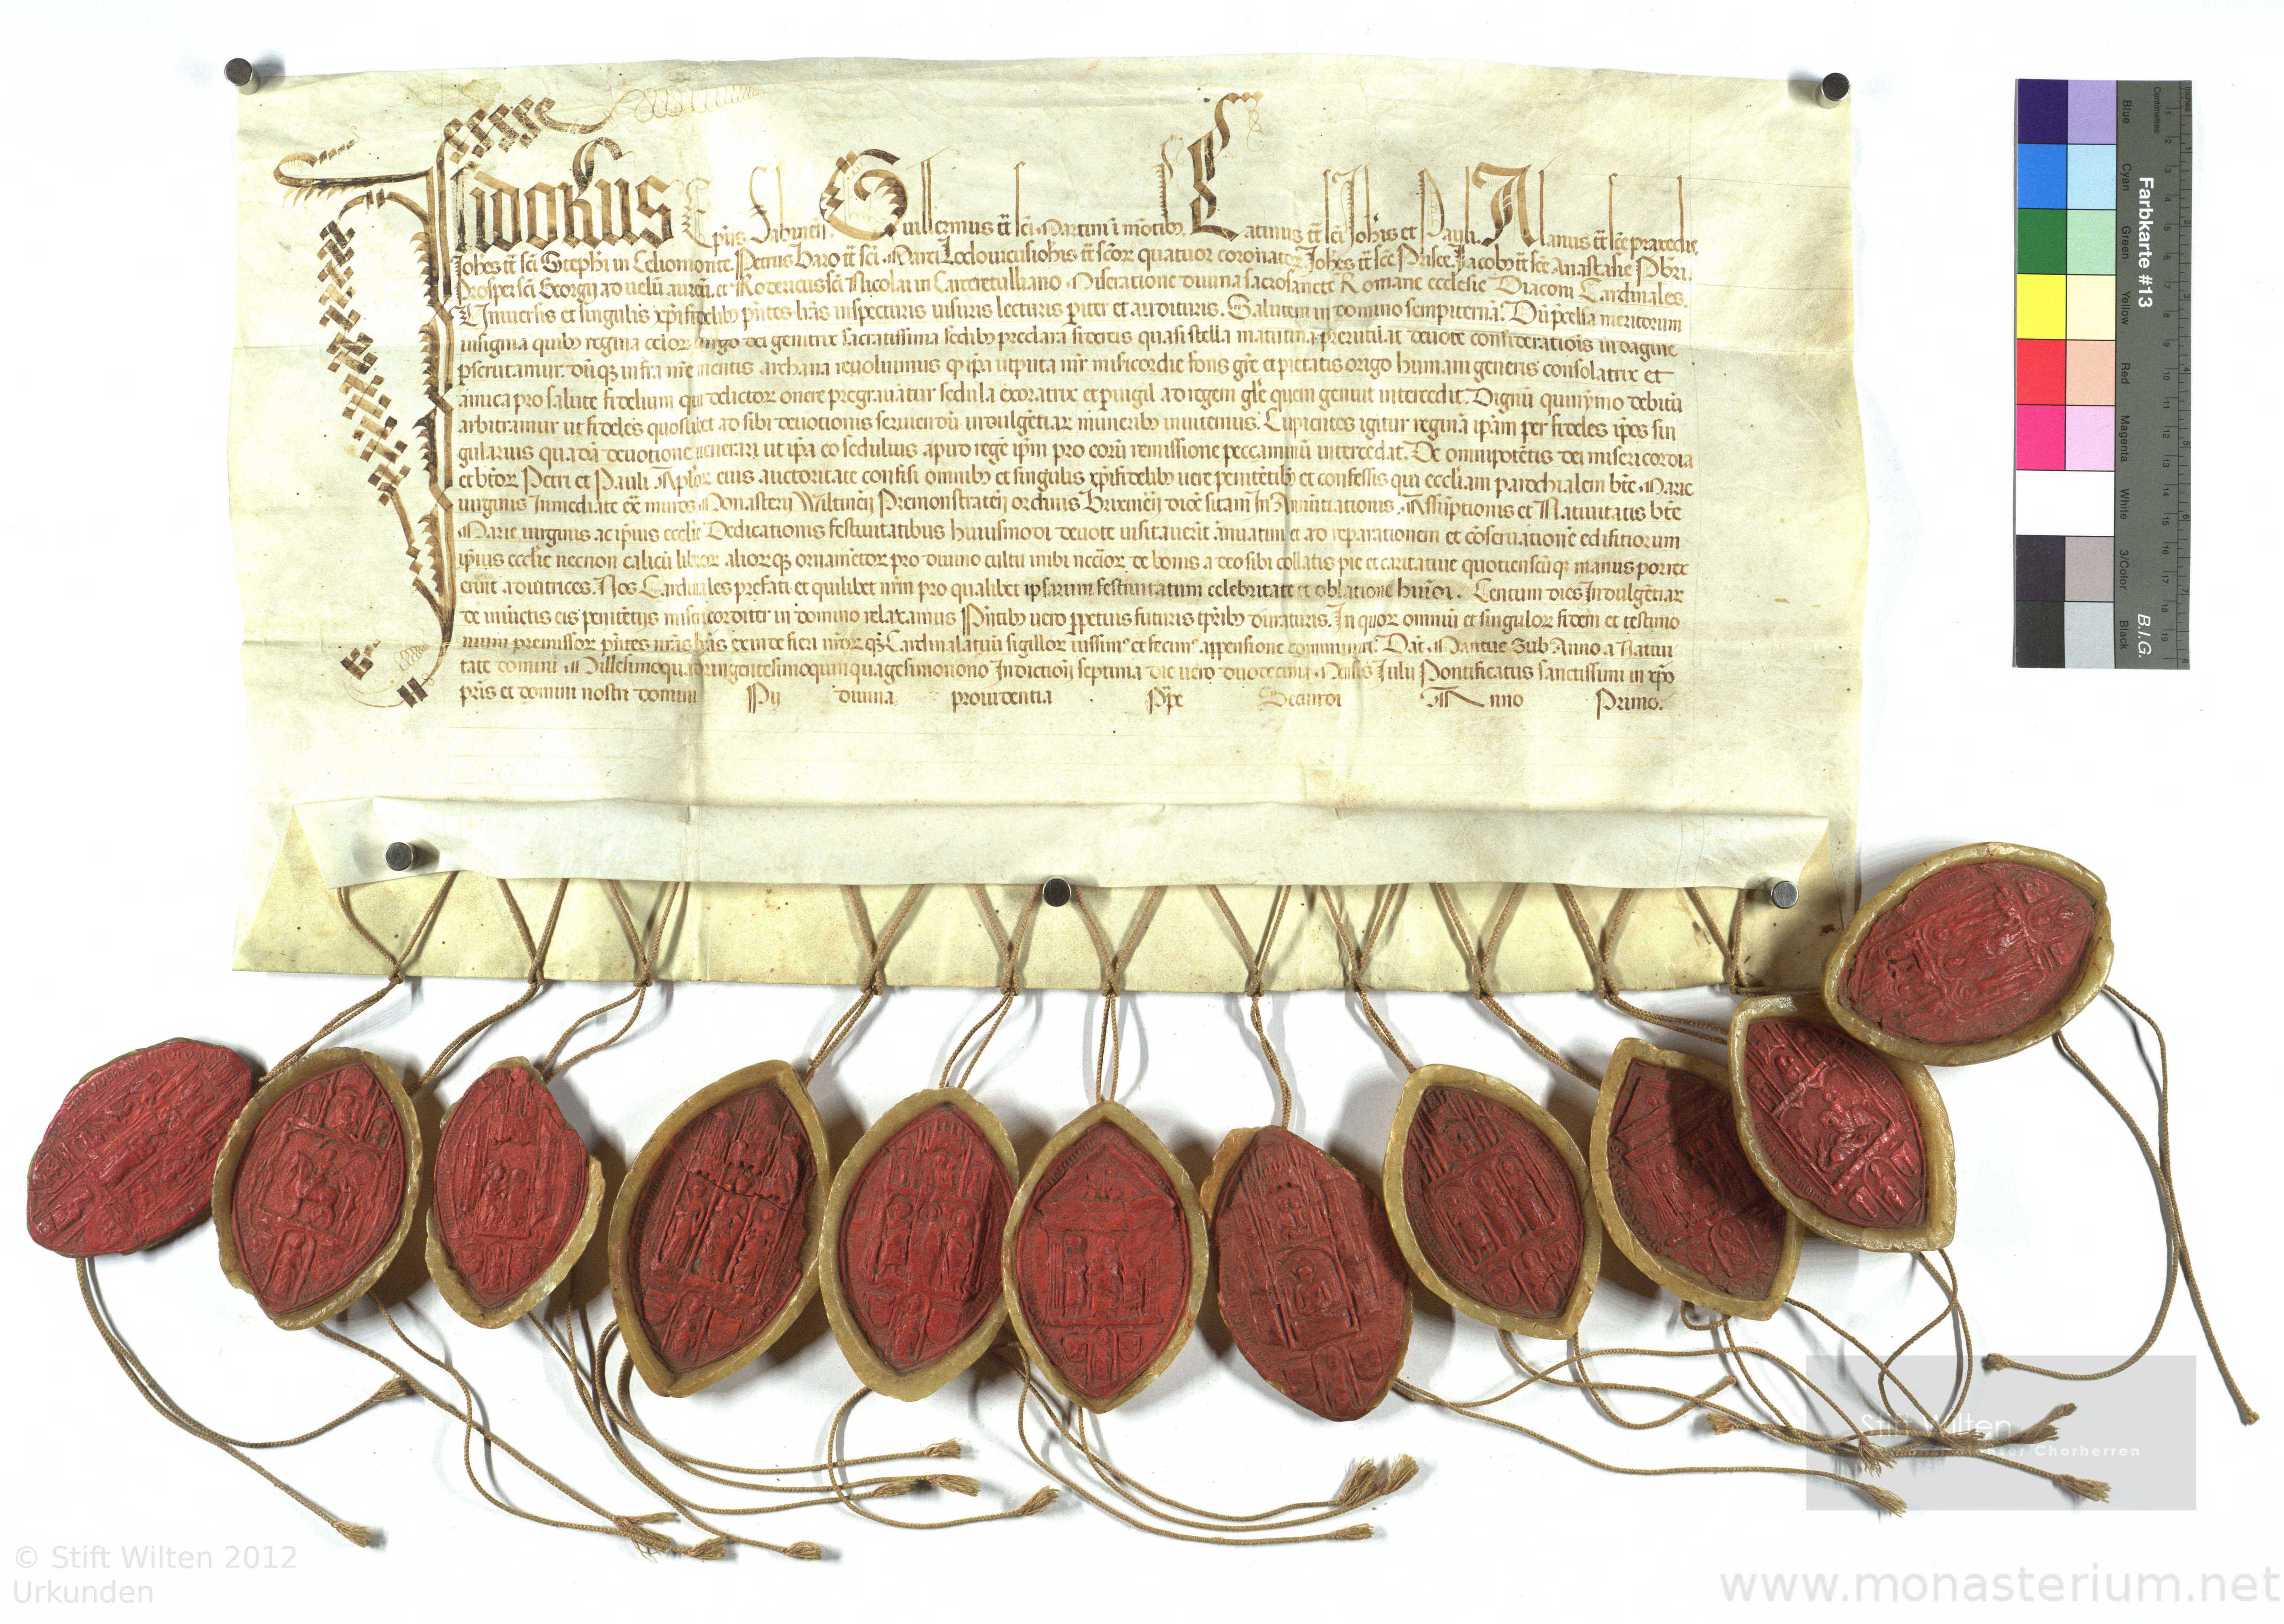 Isidorus Ep̄us Sabineñ. Guillermus tt̄ sc̄i Martini ī mōtibꝫ. Latinus tt̄ sc̄i Joh̄is et Pauli. Alanus tt̄ sc̄e praxedis
Joh̄es tt̄ sc̄i Steph̄i in Celiomonte. Petrus baro tt̄ sc̄i Marci tt̄ sc̄oꝝ quatuor coronatoꝝ. Joh̄es tt̄ sc̄e Prisce. Jacobꝰ tt̄ sc̄e Anastasie Pb̄ri.
Prosper sc̄i Georgij ad velū aureū. et Rodericus sc̄i Nicolai in Carceretulliano Miseratione divina sacrosancte Romane ecclesie Diaconi Cardinales.
Universis et singulis xp̄ifidelibꝫ p̄ntes lr̄as inspecturis visuris lecturis pariter et audituris. Salutem in domino sempiternā. Dū p̄celsa meritorum
insignia quibꝫ regina celoꝝ virgo dei genitrix sacratissima sedibꝫ preclara sidereis quasi stella matutina prerutilat devote considerationis indagine
p̄scrutamur. dūqꝫ infra nr̄e mentis archana revolvimus qꝫ ip̄a utputa mr̄ misericordie fons gr̄e et pietatis origo humani generis consolatrix et
amica pro salute fidelium qui delictoꝝ onere pregravātur sedula exoratrix et pervigil ad regem gl̄e quem genuit intercedit. Dignū quinymo debitū
arbitramur ut fideles quoslibet ad sibi devotionis servitendū indulgētiaꝝ muneribꝫ invitemus. Cupientes igitur reginā ip̄am per fideles ip̄os sin
gularius quadā devotione venerari ut ip̄a eo sedulius apud regē ip̄m pro eoꝝ remissione peccaminū intercedat. De omnipotētis dei misericordia
et bt̄oꝝ Petri et Pauli Ap̄loꝝ eius auctoritate confisi omnibꝫ et singulis xp̄ifidelibꝫ vere penitētibꝫ et confessis qui eccl̄iam parochialem bt̄e Marie
virginis Immediate ex̄ muros Monasterij Wiltineñ Premonstrateñ ordinis Brixineñ dioc̄ sitam In Annūtiationis. Assūptionis et Nativitatis bt̄e
Marie virginis ac ip̄ius eccl̄ie Dedicationis festivitatibus huiusmodi devote visitaverit ānuatim et ad reparationem et cōservationē edifitiorum
ip̄ius eccl̄ie necnon calicū libroꝝ aliorꝫqꝫ ornamētoꝝ pro divino cultu inibi nec̄ioꝝ de bonis a deo sibi collatis pie et caritative quotienscūqꝫ manus porrex
erint adiutrices. Nos Cardinales prefati et quilibet nr̄m pro qualibet ipsarum festivitatum celebritate et oblatione hui̅oi. Centum dies Indulgētiaꝝ
de iniūctis eis penitētijs misericorditer in domino relaxamus P̄ntibꝫ vero ꝑpetuis futuris tp̄ribꝫ duraturis. In quoꝝ omniū et singuloꝝ fidem et testimo
nium premissoꝝ p̄ntes nr̄as lr̄as exinde fieri nr̄oꝝqꝫ Cardinalatuū sigilloꝝ iussimꝰ et fecimꝰ appensione communiri. Dat̄ Mantue Sub Anno a Nativi
tate domini Millesimoquadringentesimoquinquagesimonono Indictioñ septima die vero duodecima Mensis Iulij Pontificatus sanctissimi in xp̄o
pr̄is et domini nostri domini Pij divina providentia P̄pe Secundi Anno Primo.
Farbkarte #13
B.I.G.
Blue Cyan Green Yellow Red Magenta White 3/Color Black
Centimetres
Inches
Stift Wilten
Chorherren
© Stift Wilten 2012
Urkunden
www.monasterium.net